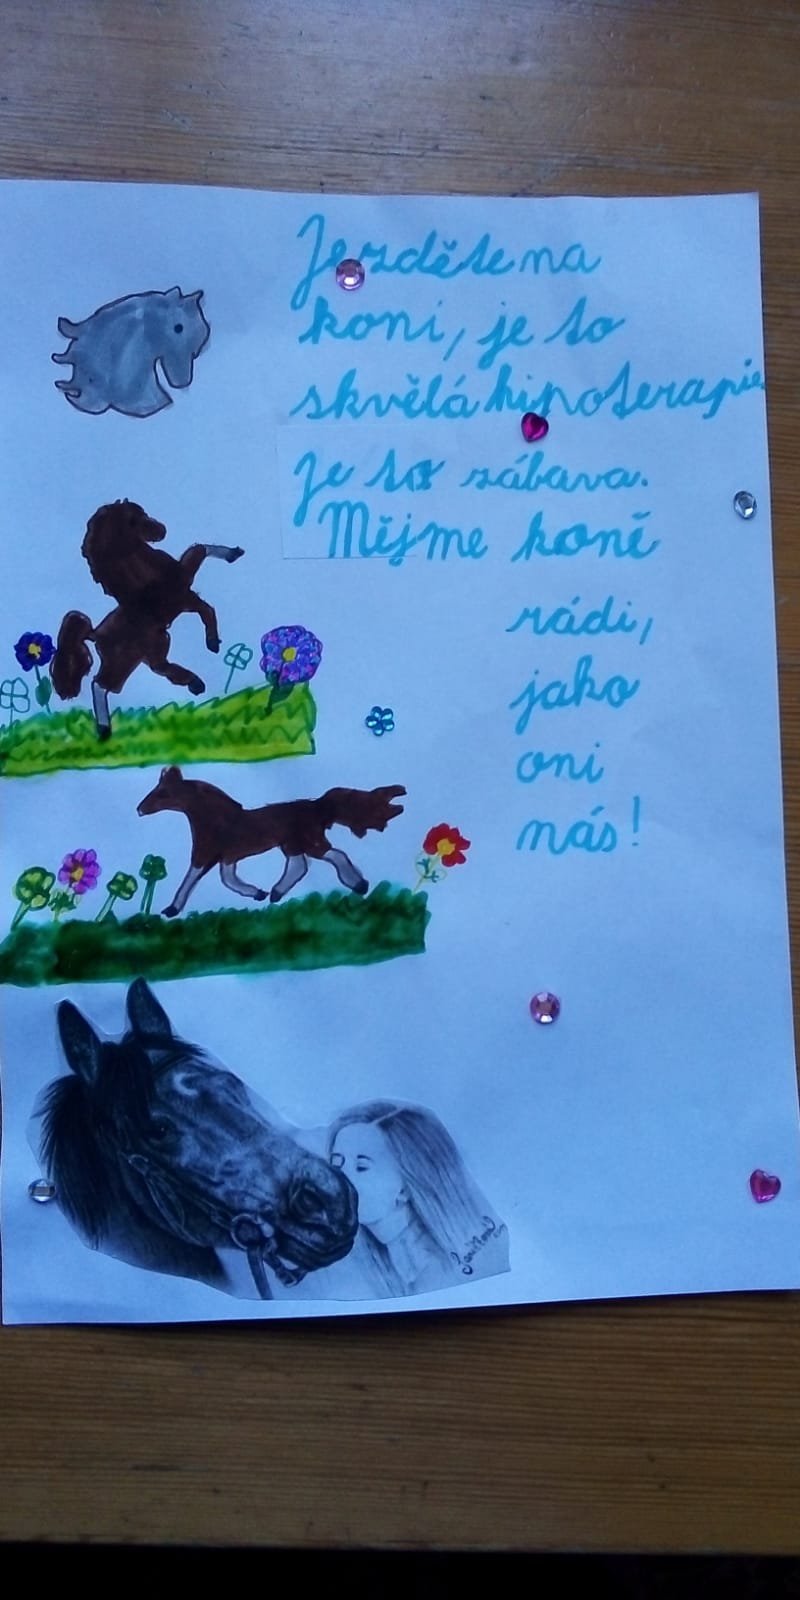 Jezděte na
koni, je to
skvělá hipoterapie.
Je to zábava.
Mějme koně
rádi,
jako
oni
nás!